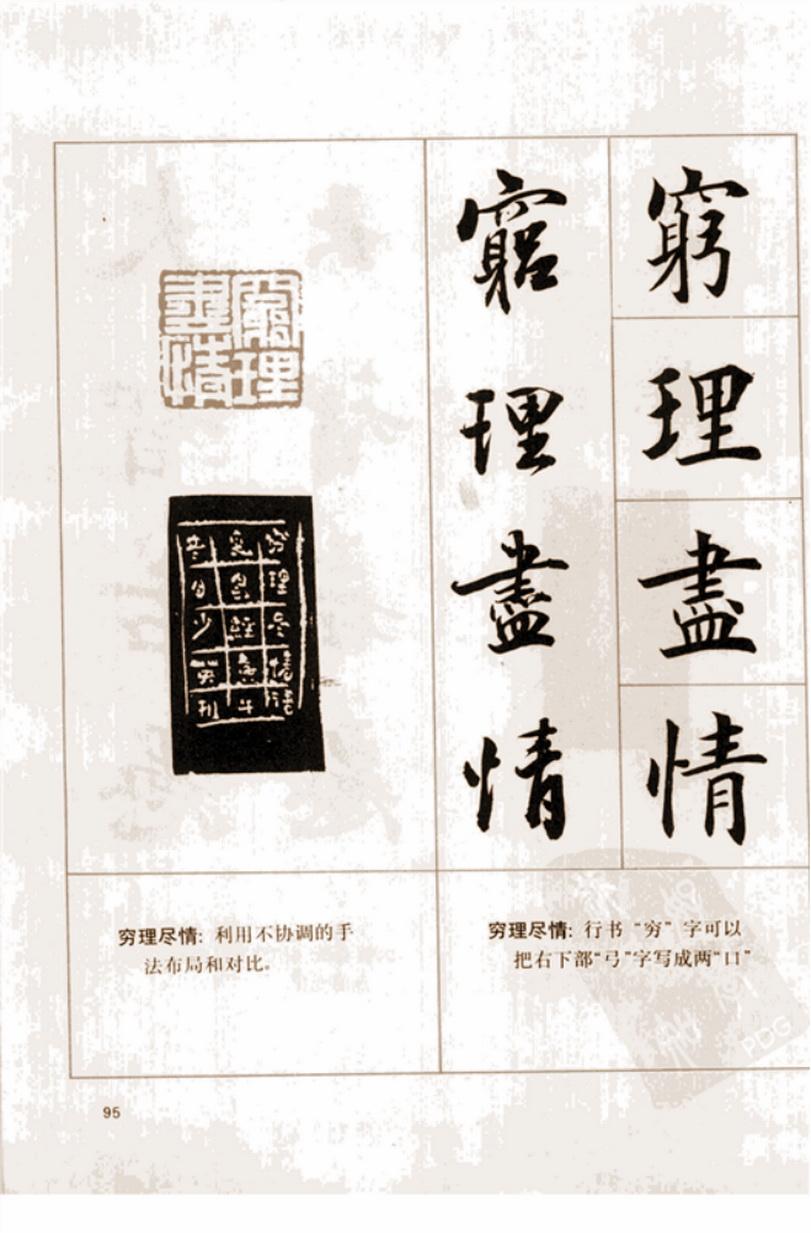 窮
理
盡
情
竆
理
盡
情
窮理
盡情
穷理尽情：利用不协调的手
法布局和对比。
穷理尽情：行书“穷”字可以
把右下部“弓”字写成两“口”
95
PDG